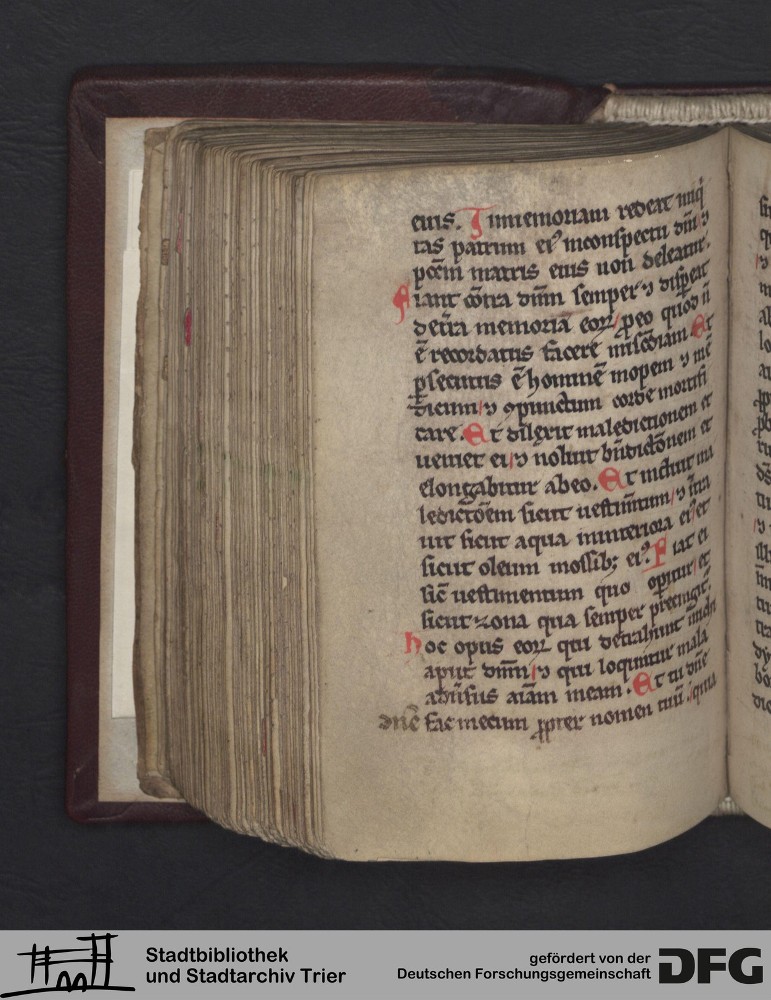 eius. In memoriam redeat iniq
tas patrum ei᾽ inconspectu dn̄i ⁊
pcc̄m matris eius non deleatur.
Fiant cōtra dn̄m semper ⁊ disp̱eat
de t̄ra memoria eoꝝ p̱ eo quod n̄
ē recordatus facere mis̄cdiam Et
p̱secutus ē hominē inopem ⁊ mē
dicum ⁊ ꝯpunctum corde mortifi
care. Et dilexit maledictionem et
ueniet ei ⁊ noluit bn̄dictōnem et
elongabitur ab eo. Et induit ma
ledictōem sicut uestimn̄tum ⁊ īt̄ra
uit sicut aqua in interiora ei᾽ et
sicut oleum in ossib; ei᾽. Fiat ei
sic̄ uestimentum quo op̱itur et
sicut zona qua semper precingit᷑.
hoc opus eoꝝ qui detrahunt michi
aput dn̄m ⁊ qui loquntur mala
adūsus aīam meam. Et tu dn̄e
dn̄e fac mecum ꝓpter nomen tuū quia
Stadtbibliothek
und Stadtarchiv Trier
gefördert von der
Deutschen Forschungsgemeinschaft
DFG